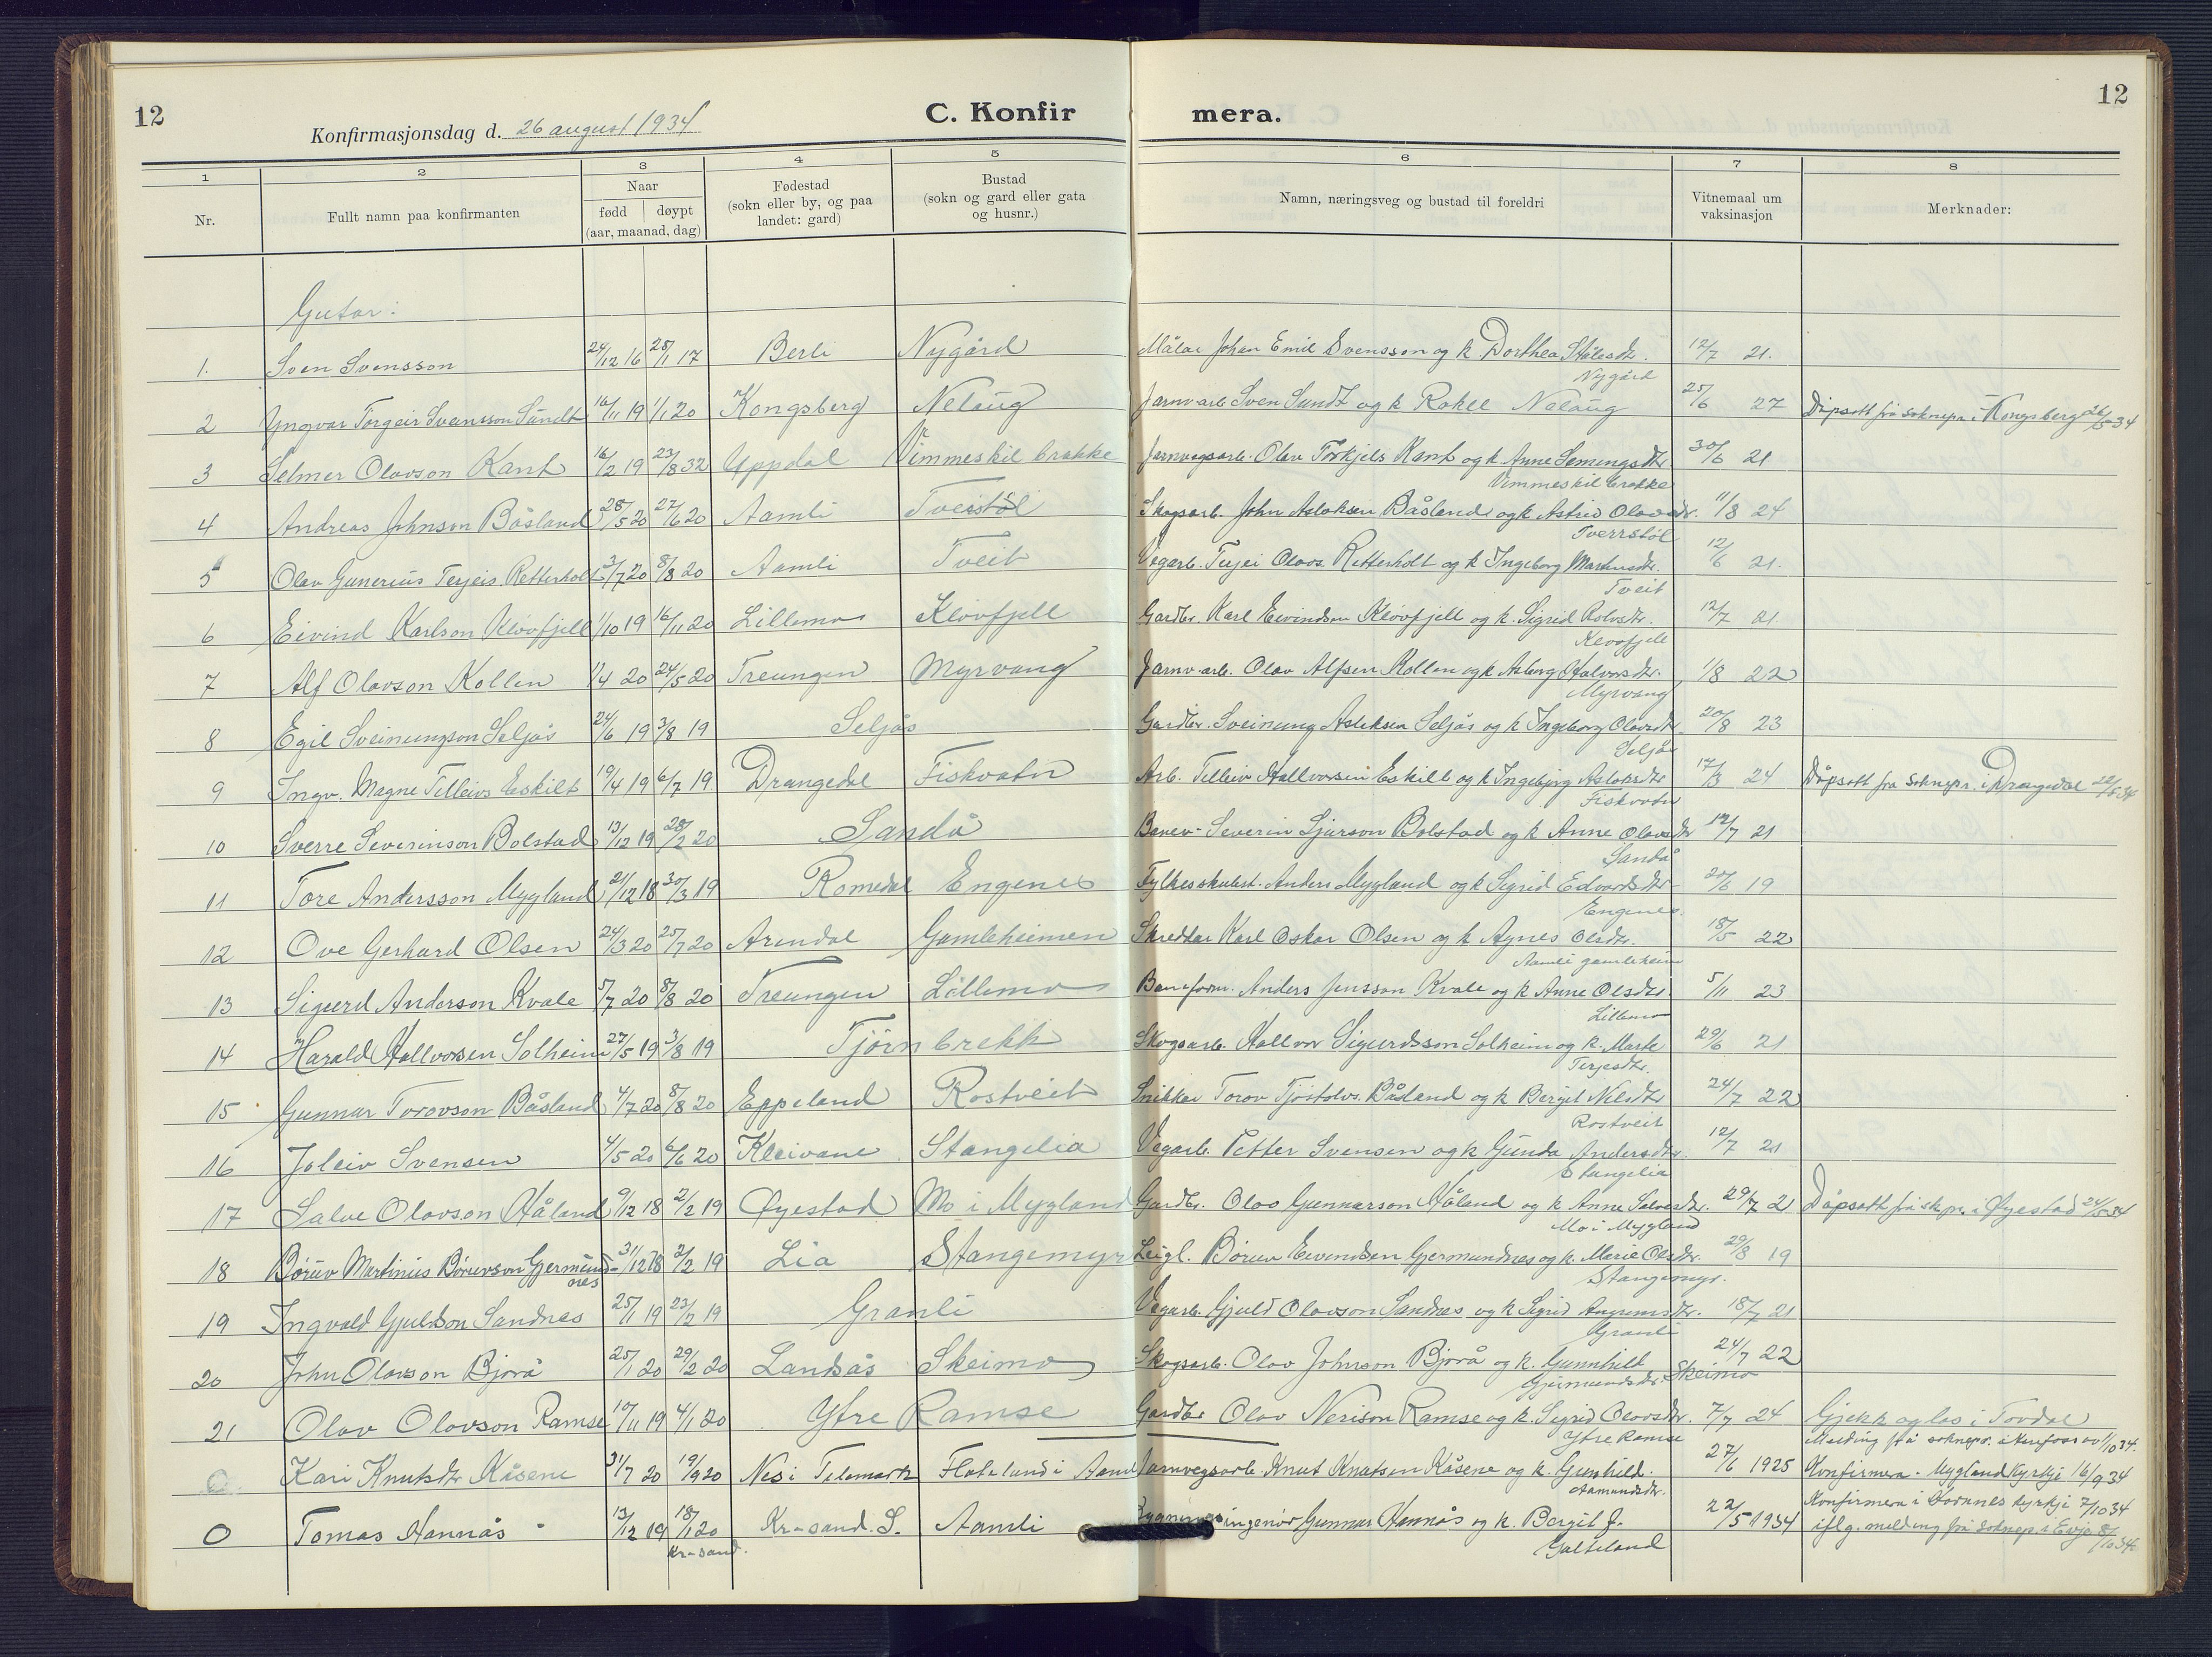 12
Konfirmasjonsdag d. 26 august 1934
C. Konfirmera.
12
1 2 3 4 5 6 7 8
Nr.
Fullt namn paa konfirmanten
Naar
fødd døypt
(aar, maanad, dag)
Fødestad
(sokn eller by, og paa
landet: gard)
Bustad
(sokn og gard eller gata
og husnr.)
Namn, næringsveg og bustad til foreldri
Vitnemaal um
vaksinasjon
Merknader:
Gutar:
1. Sven Svensson 24/12 16 28/1 17 Berli Nygård Målar Johan Emil Svensson og k Dorthea Stålesdtr. 12/7 21.
Nygård
2 Yngvar Torgeir Svensson Sundt 16/11 19 1/1 20 Kongsberg Nelaug Jarnv-arb. Sven Sundt og k Rakel Nelaug 25/6 27 Dåpsatt frå soknepr. i Kongsberg 26/5 34
3 Selmer Olavson Kant 16/2 19 23/8 32 Uppdal Vimmeskil brakke Jarnvegsarb. Olav Torkjels Kant og k Anne Semingsdtr 30/6 21
Vimmeskil brakke
4 Andreas Johnson Båsland 28/5 20 27/6 20 Aamli Tveistöl Skogsarb. John Aslaksen Båsland og k Astrid Olavsdtr. 11/8 24
Tverrstöl
5 Olav Gunerius Terjeis. Retterholt 3/7 20 8/8 20 Aamli Tveit Vegarb. Terjei Olavs. Retterholt og k Ingeborg Markusdtr. 12/6 21.
Tveit
6 Eivind Karlson Klövfjell 1/10 19 16/11 20 Lillemo Klövfjell Gardbr. Karl Eivindson Klövfjell og k. Sigrid Rolvsdtr. 12/7 21
Klövfjell
7 Alf Olavson Kollen 1/4 20 24/5 20 Treungen Myrvang Jarnv-arb. Olav Alfsen Kollen og k Asborg Halvorsdtr. 1/8 22
Myrvang
8 Egil Sveinungson Seljås 24/6 19 3/8 19 Seljås Gardbr. Sveinung Asleksen Seljås og k Ingeborg Olavsdtr 20/8 23
Seljås
9 Ingv. Magne Telleivs Eskilt 19/4 19 6/7 19 Drangedal Fiskvatn Arb. Telleiv Hallvorsen Eskilt og k Ingebjørg Aslaksdtr 17/3 24 Dåpsatt fra soknepr. i Drangedal 22/5 34
Fiskvatn
10 Sverre Severinson Bolstad 13/12 19 28/2 20 Sandå Banev- Severin Sjurson Bolstad og k Anne Olavsdtr 12/7 21
Sandå
11 Tore Andersson Mygland 21/12 18 30/3 19 Romedal Engenes Fylkesskulest. Anders Mygland og k Sigrid Edvardsdtr. 20/6 19
Engenes.
12 Ove Gerhard Olsen 24/3 20 25/7 20 Arendal Gamleheimen Skreddar Karl Oskar Olsen og k Agnes Olsdtr. 18/5 22
Aamli gamleheim
13 Sigurd Anderson Kvale 5/7 20 8/8 20 Treungen Lillemo Baneform. Anders Jensson Kvale og k Anne Olsdtr. 5/11 23
Lillemo
14 Harald Hallvorsen Solheim 27/5 19 3/8 19 Tjörnbrekk Skogsarb. Hallvor Sigurdsson Solheim og k. Marte 29/6 21
Terjesdtr.
15 Gunnar Torovson Båsland 4/7 20 8/8 20 Eppeland Rostveit Snikkar Torov Tjöstolvs. Båsland og k Bergit Nilsdtr 24/7 22
Rostveit
16 Joleiv Svensen 4/5 20 6/6 20 Kleivane Stangelia Vegarb. Petter Svensen og k Gunda Andersdtr. 12/7 21
Stangelia
17 Salve Olavson Håland 9/12 18 2/2 19 Øyestad Mo i Mygland Gardbr. Olav Gunnarson Håland og k Anne Salvesdtr. 29/7 21 Dåpsatt frå sk.pr. i Øyestad 24/5 34
Mo i Mygland
18 Böruv Martinius Böruvson Germund- 31/12 18 2/2 19 Lia Stangemyr Leigl. Böruv Eivendsen Germundnes og k. Marie Olsdtr. 29/8 19
nes Stangemyr.
19 Ingvald Gjuldson Sandnes 25/1 19 23/2 19 Granli Vegarb. Gjuld Olavson Sandnes og k Sigrid dtr. 18/7 21
Granli
20 John Olavson Bjorå 25/1 20 29/2 20 Landsås Skeimo Skogsarb. Olav Johnson Bjorå og k. Gunnhild 24/7 22
Gjermundsdtr. Skeimo
21 Olav Olavson Ramse 10/11 19 4/1 20 Ytre Ramse Gardbr Olav Nerison Ramse og k. Sigrid Olavsdtr. 7/7 24 Gjekk og las i Tovdal
Ytre Ramse Melding frå soknepr. i 1/10 34.
0 Kari Knutsdtr Kåsene 31/7 20 19/9 20 Nes i Telemark Flateland i Aamli Jarnvegsarb. Knut Knutsen Kåsene og k. Gunhild 27/6 1925 Konfirmera. Mygland kyrkje 16/9 34
Aamundsdtr.
Konfirmera i Hornnes kyrkje 7/10 34
0 Tomas Hannås 13/12 19 18/1 20 Kr-sand. S. Aamli Bygningsingeniör Gunnar Hannås og k. Bergit J. 22/5 1934 iflg. melding frå soknep. i Evje 8/10 34
Kr-sand. Galteland